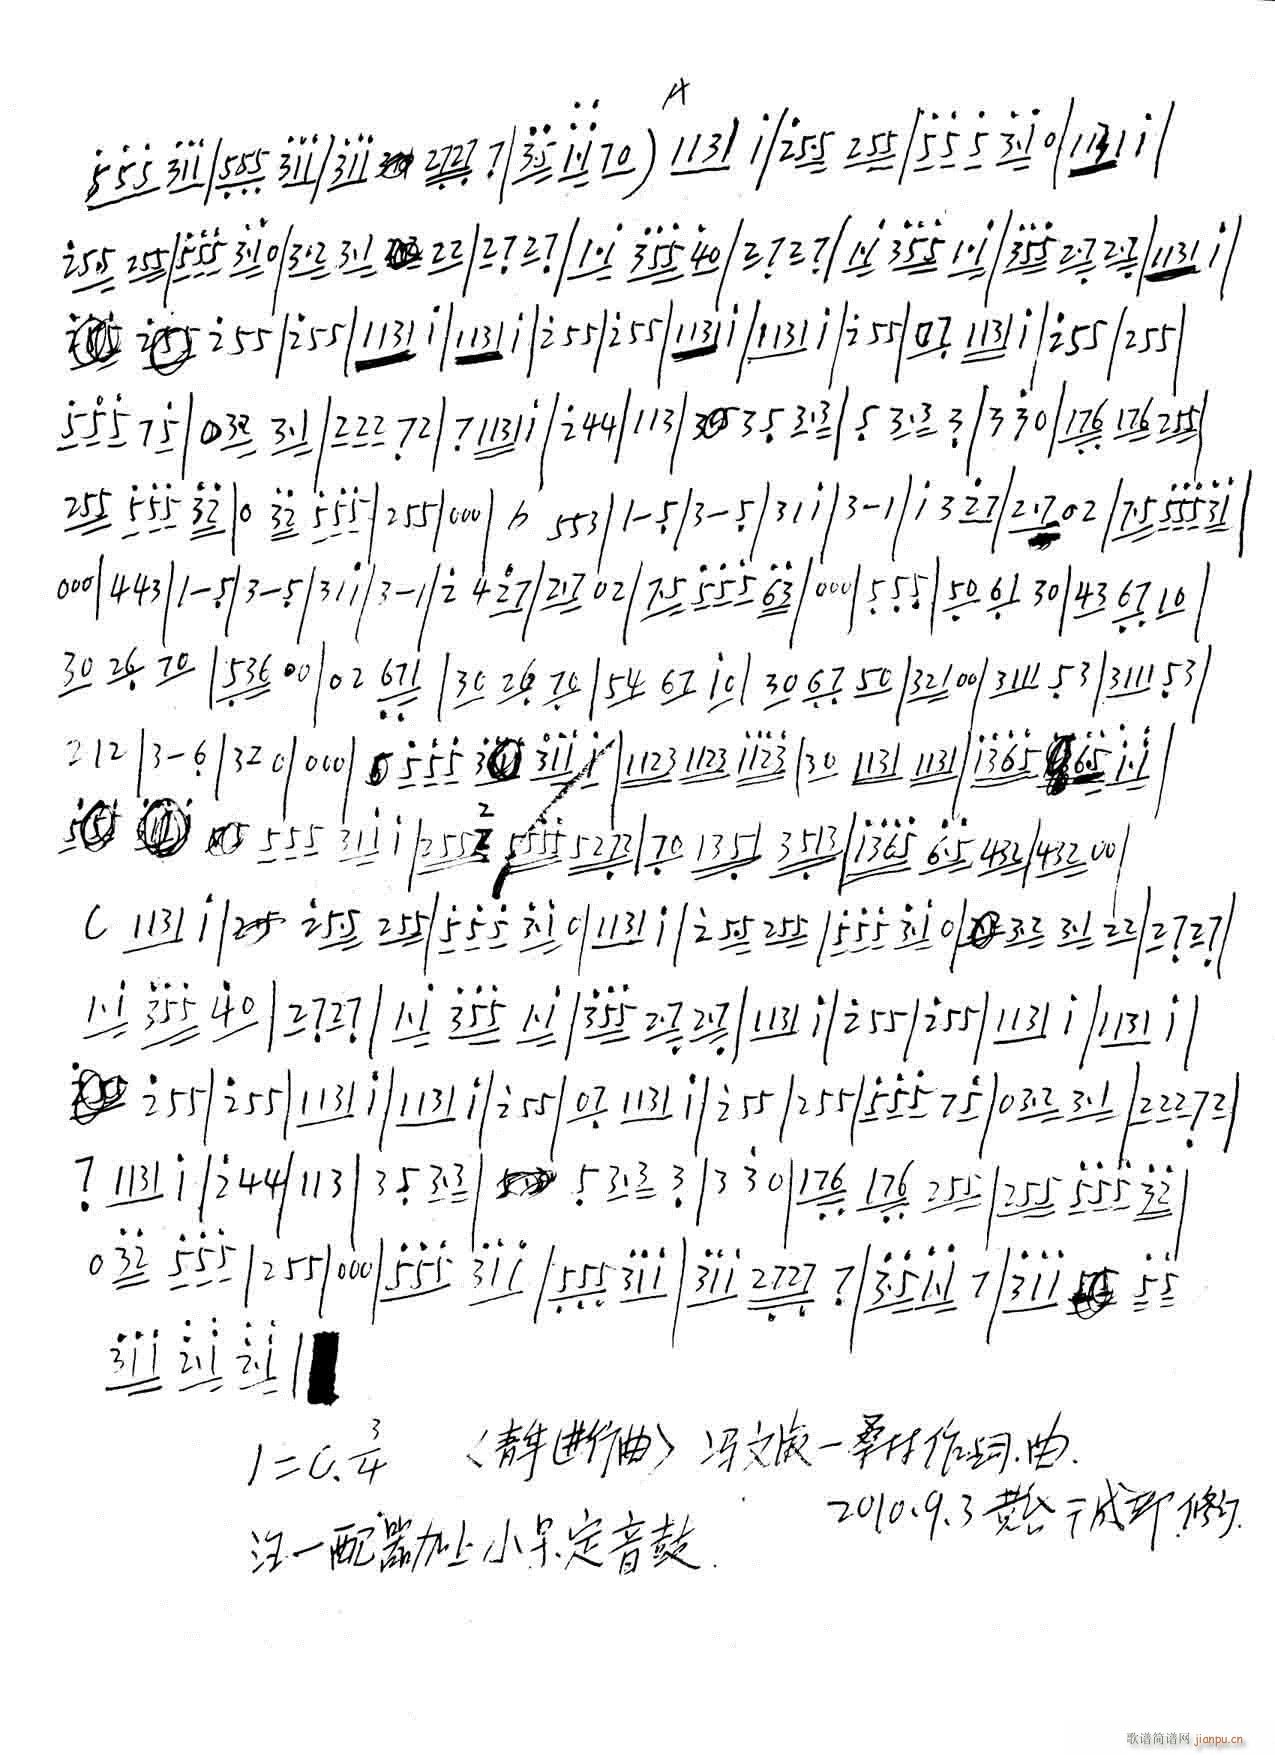 A
5 5 5 311|585 311|311 2727 7|3·5 1·1 70) 1131 1|25·5 255|5 5 5 3·1 0|1131 1|
25·5 255|555 3·1 0|3·2 3·1 22|2727|1·1 355 40|2727|1·1 355 1·1|355 2·7 2·7|1131 1|
255|255|1131 1|1131 1|255|255|1131 1|1131 1|255|07 1131 1|255|255|
555 75|032 3·1|222 72|7 1131 1|244|113|35 3·3|5 3·3 3|330|176 176 255|
255 555 32|0 32 555|255|000| b 553|1-5|3-5|311|3-1|1 3 27|2·7 02|7·5 55531|
000|443|1-5|3-5|311|3-1|2 4 27|2·7 02|7·5 555 63|000|555|50 61 30|43 67 10|
30 26 70|536 00|02 671|30 26 70|54 67 10|30 67 50|32100|3111 53|3111 53|
212|3-6|320|000| 5 555 311 1|1123 1123 1123|30 1131 1131|1365 6·5 1·1|
555 311 1|255 2 5555 5272|70 1351 3513|1365 6·5 432|432 00|
C 1131 1|25·5 255|555 3·1 0|1131 1|25·5 255|555 3·1 0|3·2 3·1 22|2727|
1·1 355 40|2727|1·1 355 1·1|355 2·7 2·7|1131 1|255|255|1131 1|1131 1|
255|255|1131 1|1131 1|255|07 1131 1|255|255|555 75|03·2 3·1|22272|
7 1131 1|244|113|35 3·3|5 3·3 3|330|176 176 255|255 555 32|
0 32 555|255|000|555 311|555 311|311 2727 7|3·5 1·1 7|311 55
311 2·1 2·1|
1=C. 3/4 〈青年进行曲〉冯文俊一桑林作词.曲.
2010.9.3 修订.
注一配器加上小号.定音鼓.
歌谱简谱网 jianpu.cn